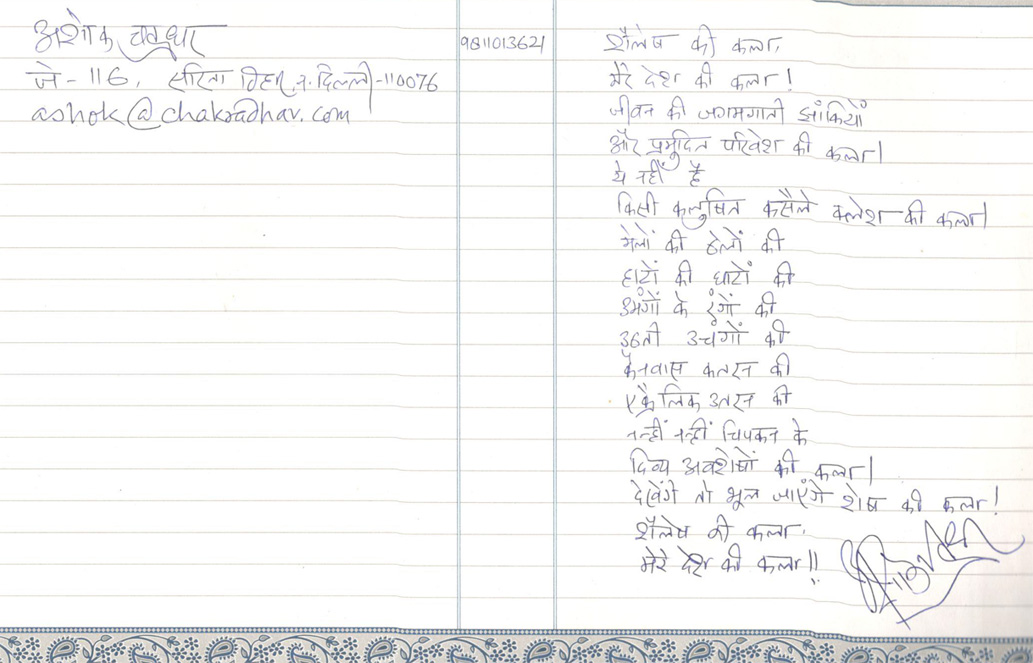 अशोक चक्रधर
जे-116, सरिता विहार, न. दिल्ली-110076
ashok@chakradhar.com
9811013621
शैलेष की कला,
मेरे देश की कला!
जीवन की जगमगाती झांकियों
और प्रमुदित परिवेश की कला।
ये नहीं है
किसी कलुषित कसैले क्लेश की कला।
मेलों की ठेलों की
हाटों की घाटों की
उमंगों के रंगों की
उठती उचंगों की
कैनवास कतरन की
एक्रैलिक उतरन की
नन्हीं नन्हीं चिपकन के
दिव्य अवशेषों की कला।
देखेंगे तो भूल जाएंगे शेष की कला!
शैलेष की कला.
मेरे देश की कला!!